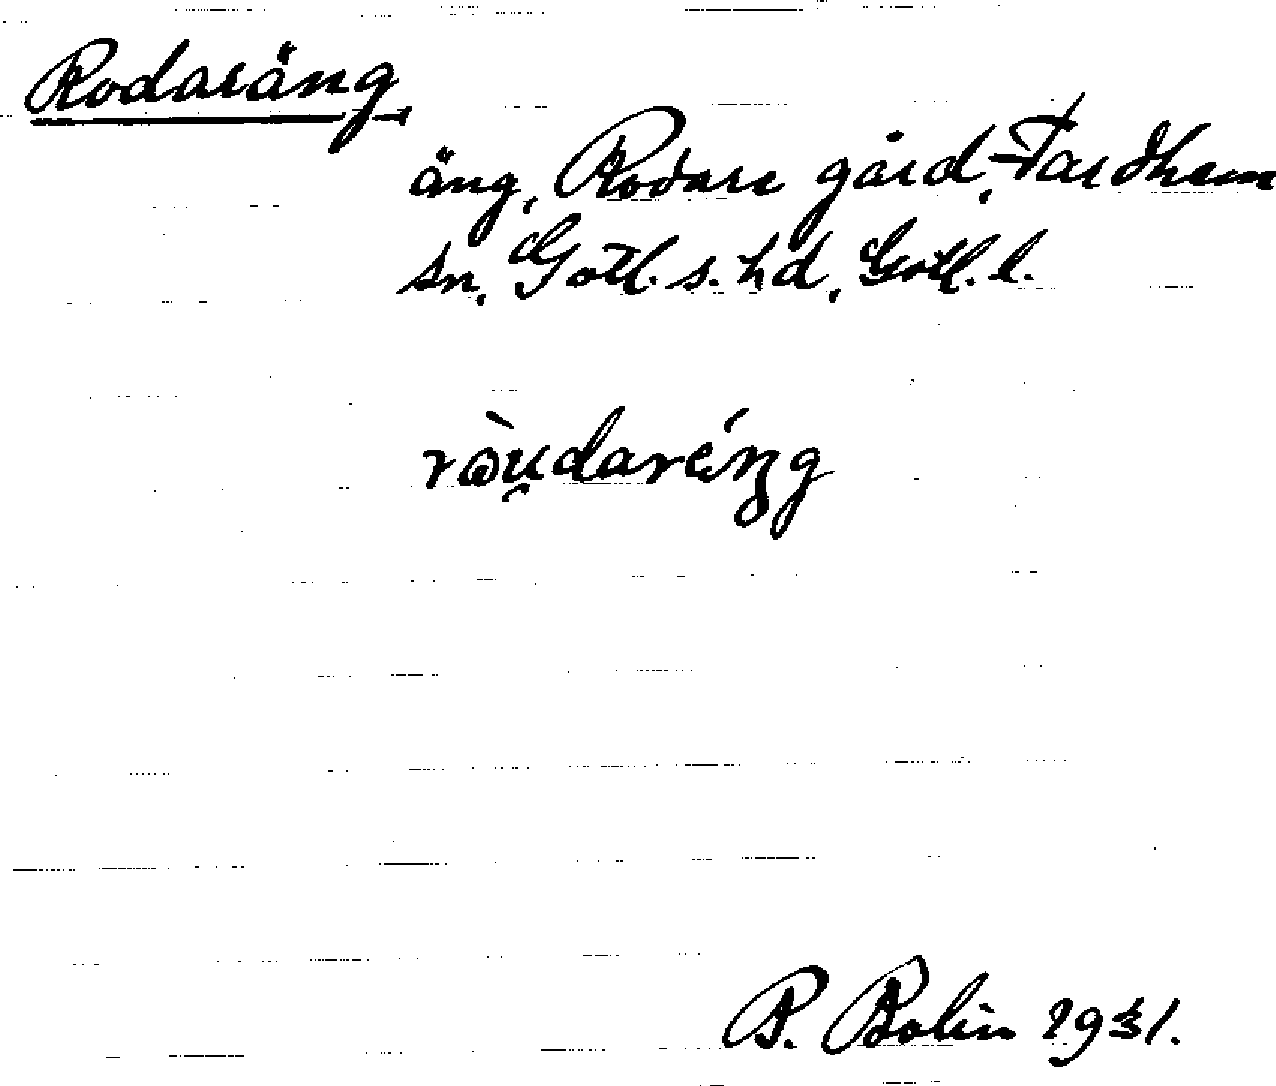 Rodaräng
äng, Rodare gård, Fardhem
sn, Gotl. s. hd, Gotl. l.
ròu̯daréŋg
P. Bolin 1931.